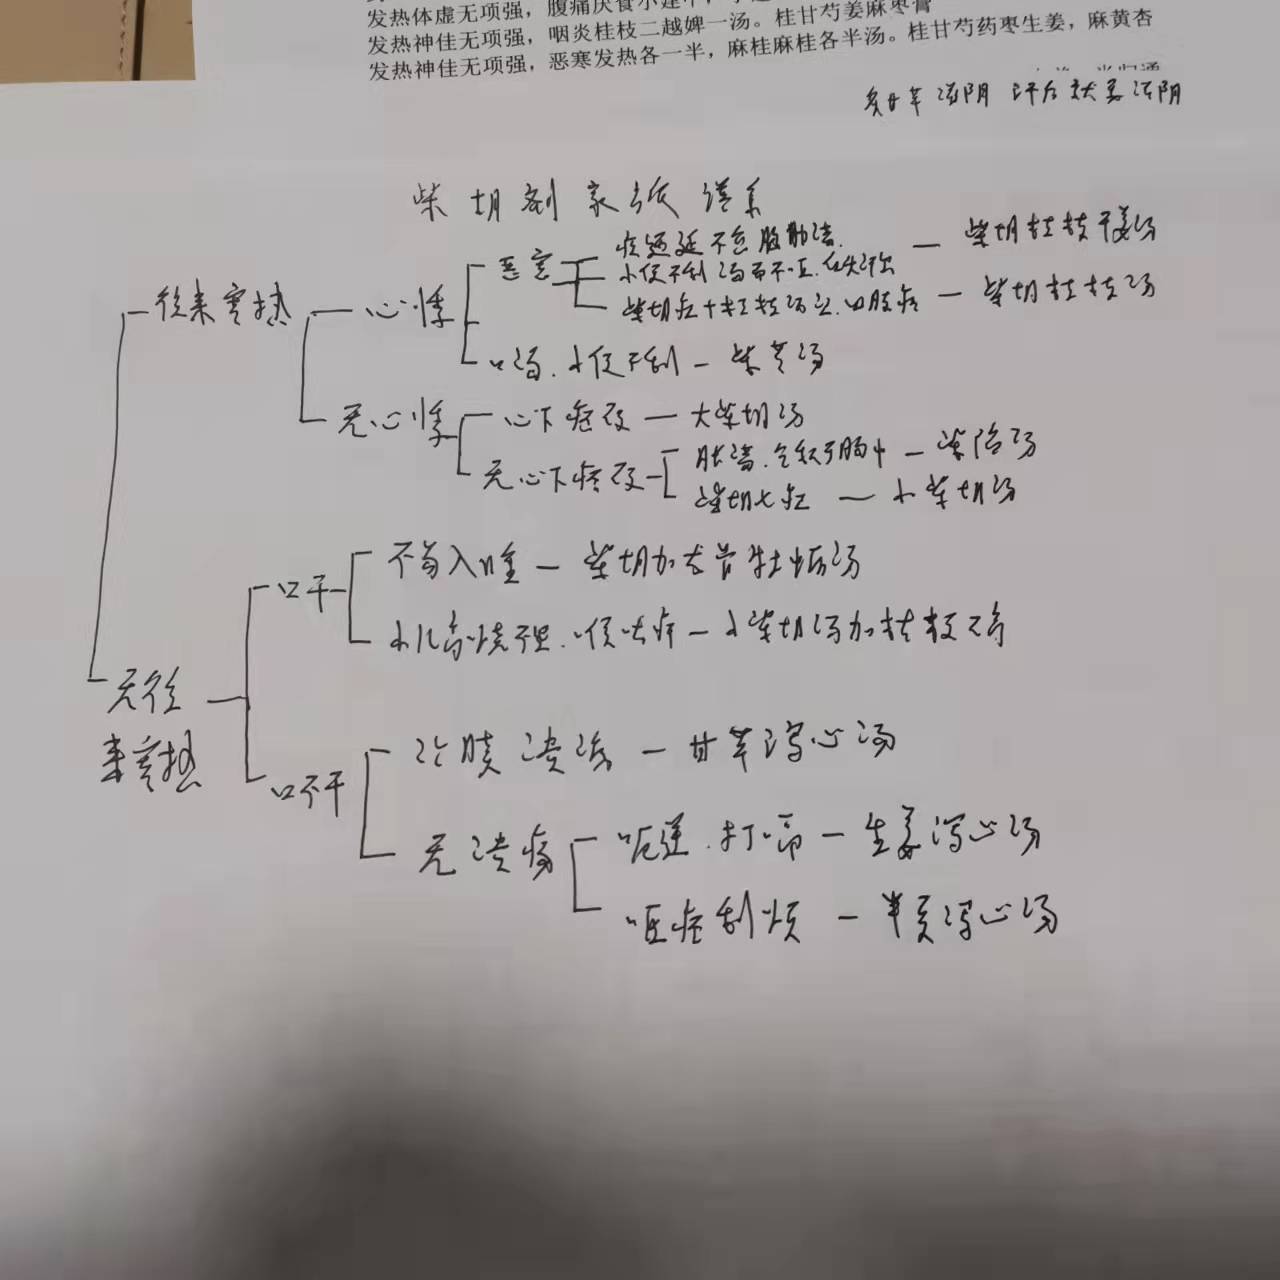 发热体虚无项强，腹痛厌食小建中，
发热神佳无项强，咽炎桂枝二越婢一汤。桂甘芍姜麻枣膏
发热神佳无项强，恶寒发热各一半，麻桂麻桂各半汤。桂甘芍药枣生姜，麻黄杏
炙甘草滋阴
柴胡剂家族谱系
往来寒热
心悸
恶寒
柴胡桂枝干姜汤
小便不利 渴而不呕
柴胡桂枝汤
口渴.小便不利 — 柴苓汤
无心悸
心下痞硬 — 大柴胡汤
无心下痞硬
胀满 — 柴陷汤
柴胡七症 — 小柴胡汤
无往
来寒热
口干
不易入睡 — 柴胡加龙骨牡蛎汤
小儿高烧不退.喉咙痛 — 小柴胡汤加桔梗石膏
口不干
溃疡 — 甘草泻心汤
无溃疡
呃逆.打嗝 — 生姜泻心汤
呕痞利烦 — 半夏泻心汤